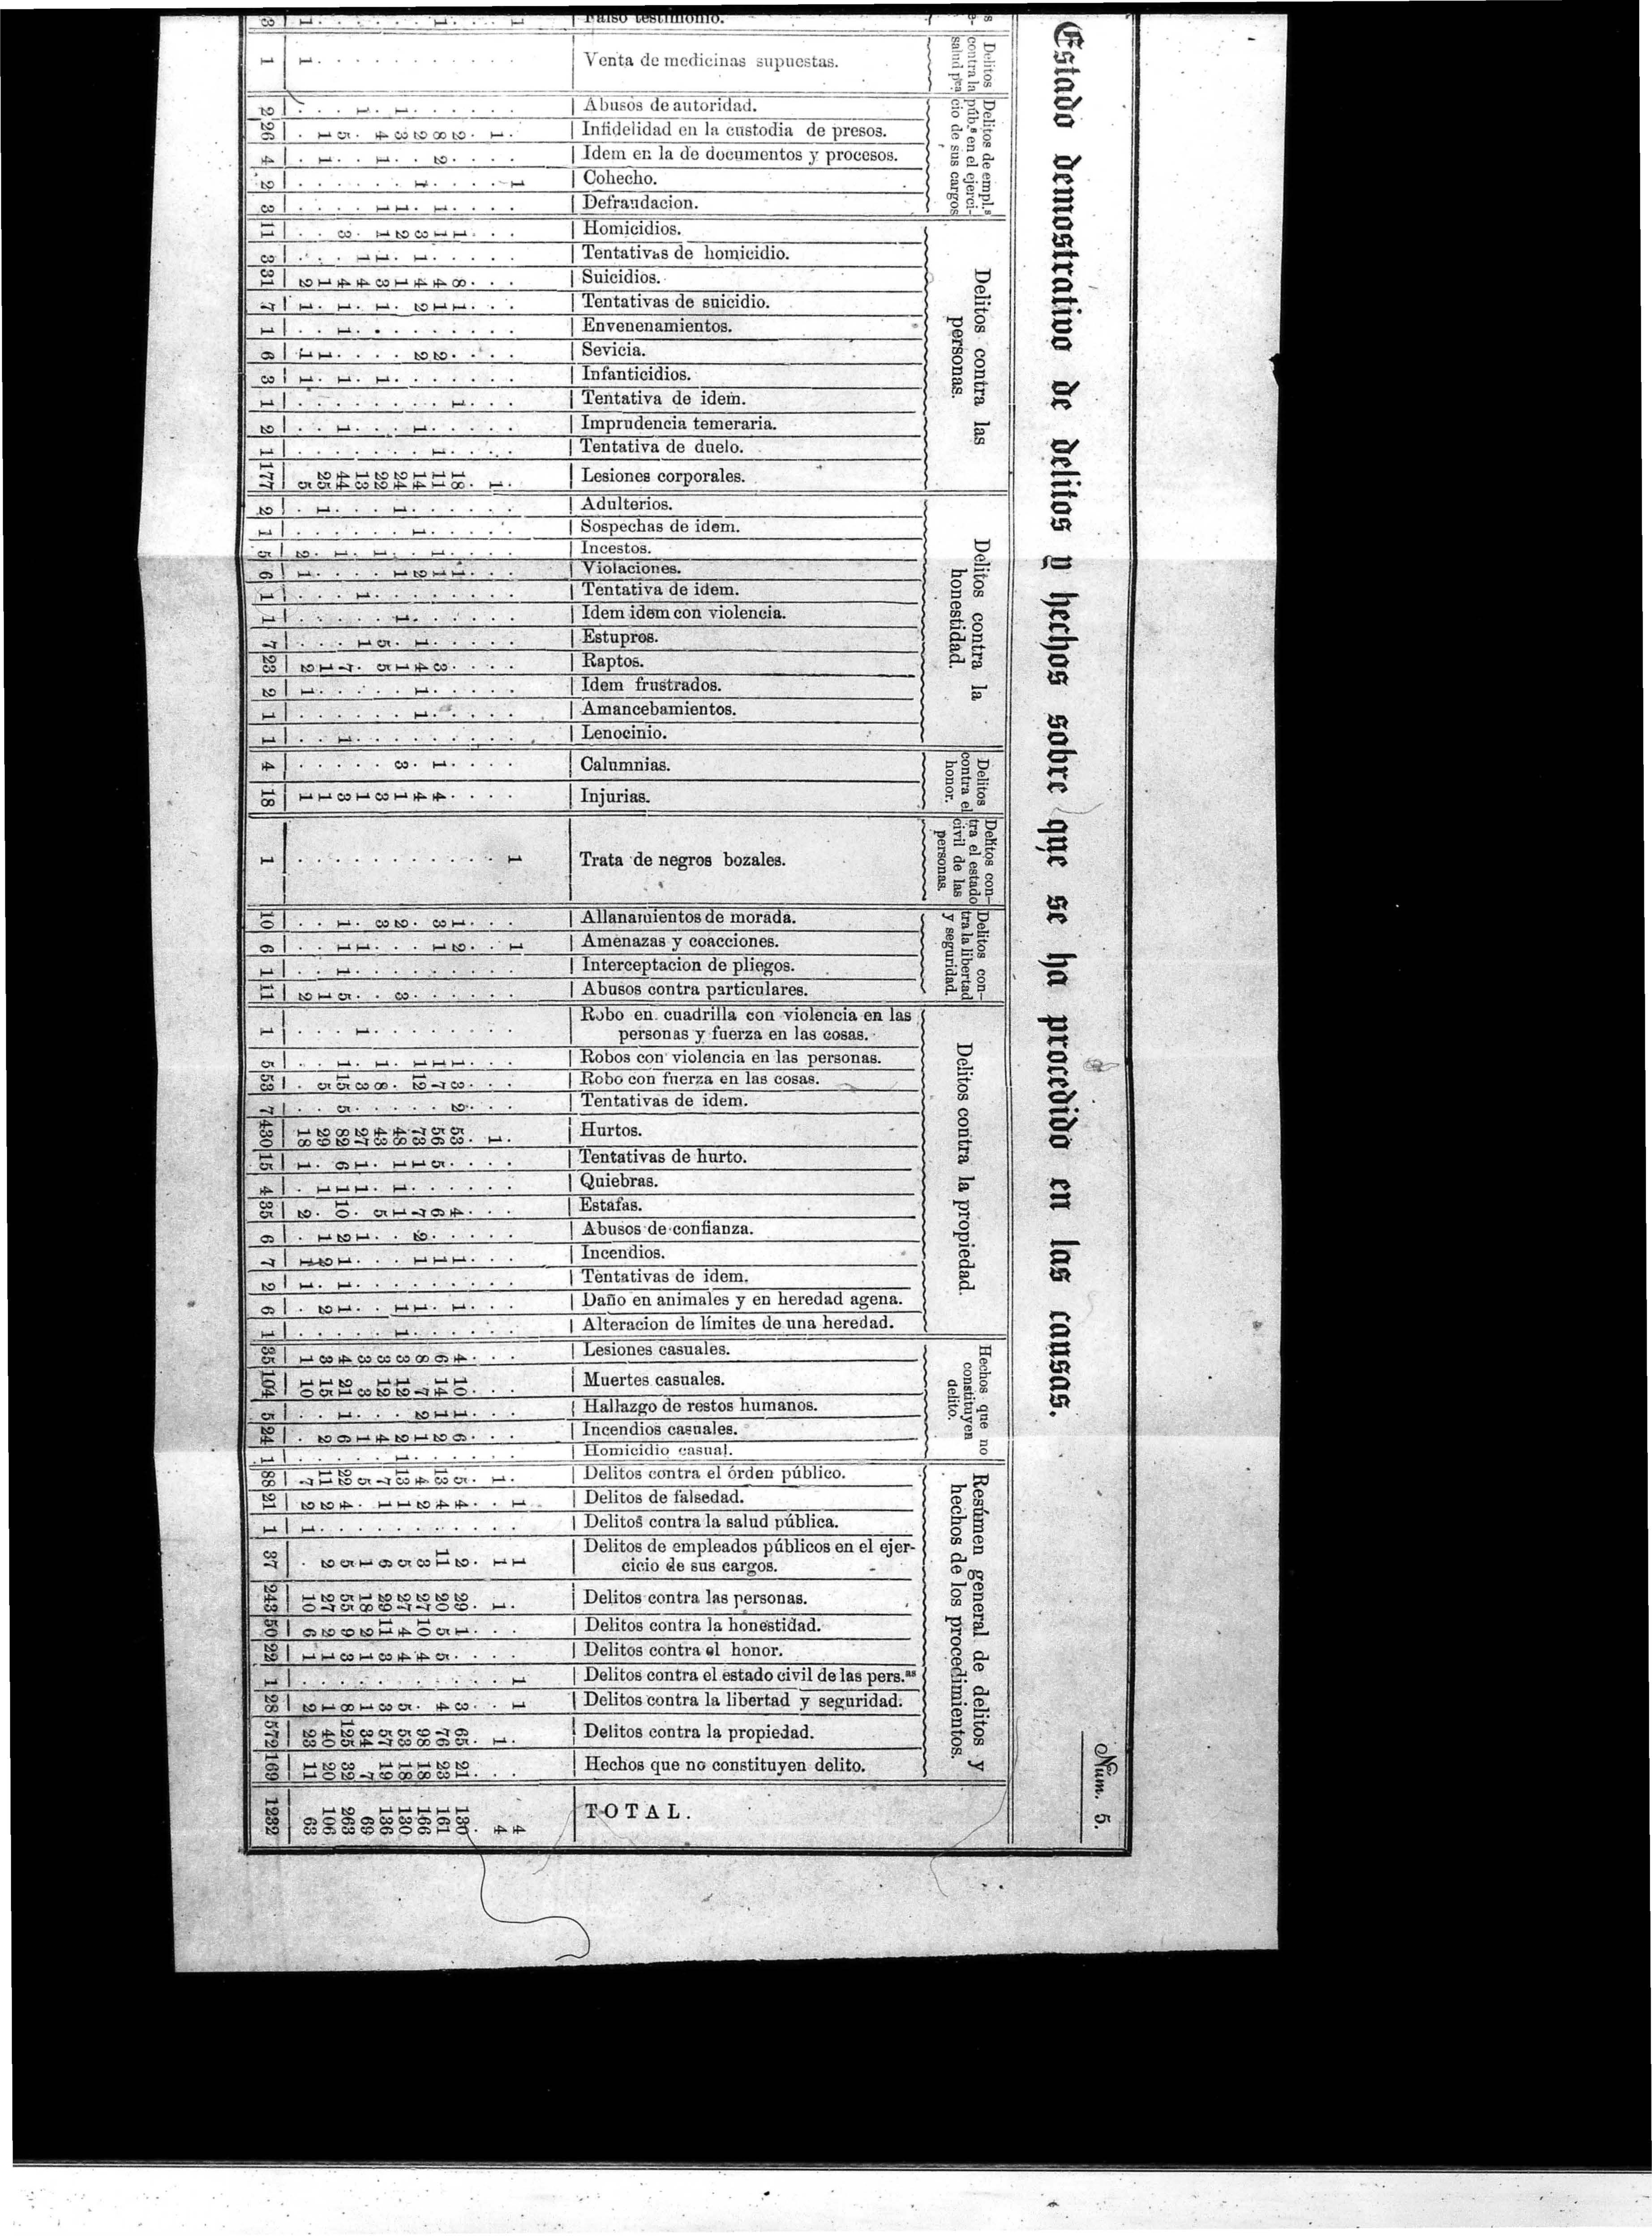 Num. 5.
Estado demostrativo de delitos y hechos sobre que se ha procedido en las causas.
Falso testimonio. 1 1 1 3
Delitos contra la salud pca
Venta de medicinas supuestas. 1 1
Delitos de empl.s púb.s en el ejercicio de sus cargos
Abusos de autoridad. 1 1 2
Infidelidad en la custodia de presos. 1 2 8 2 3 4 5 1 26
Idem en la de documentos y procesos. 2 1 1 4
Cohecho. 1 1 2
Defraudacion. 1 1 1 3
Delitos contra las personas.
Homicidios. 1 1 3 2 1 3 11
Tentativas de homicidio. 1 1 1 3
Suicidios. 8 4 4 1 3 4 4 1 2 31
Tentativas de suicidio. 1 1 2 1 1 1 7
Envenenamientos. 1 1
Sevicia. 2 2 1 1 6
Infanticidios. 1 1 1 3
Tentativa de idem. 1 1
Imprudencia temeraria. 1 1 2
Tentativa de duelo. 1 1
Lesiones corporales. 1 18 11 14 24 22 13 44 25 5 177
Delitos contra la honestidad.
Adulterios. 1 1 2
Sospechas de idem. 1 1
Incestos. 1 1 1 2 5
Violaciones. 1 1 2 1 1 6
Tentativa de idem. 1 1
Idem idem con violencia. 1 1
Estupros. 1 5 1 7
Raptos. 3 4 1 5 7 1 2 23
Idem frustrados. 1 1 2
Amancebamientos. 1 1
Lenocinio. 1 1
Delitos contra el honor.
Calumnias. 1 3 4
Injurias. 4 4 1 3 1 3 1 1 18
Delitos contra el estado civil de las personas.
Trata de negros bozales. 1 1
Delitos contra la libertad y seguridad.
Allanamientos de morada. 1 3 2 3 1 10
Amenazas y coacciones. 1 2 1 1 1 6
Interceptacion de pliegos. 1 1
Abusos contra particulares. 3 5 1 2 11
Delitos contra la propiedad.
Robo en cuadrilla con violencia en las
personas y fuerza en las cosas. 1 1
Robos con violencia en las personas. 1 1 1 1 1 5
Robo con fuerza en las cosas. 3 7 12 8 3 15 5 53
Tentativas de idem. 2 5 7
Hurtos. 1 53 56 73 48 43 27 82 29 18 430
Tentativas de hurto. 5 1 1 1 6 1 15
Quiebras. 1 1 1 1 4
Estafas. 4 6 7 1 5 10 2 35
Abusos de confianza. 2 1 2 1 6
Incendios. 1 1 1 1 2 1 7
Tentativas de idem. 1 1 2
Daño en animales y en heredad agena. 1 1 1 1 2 6
Alteracion de límites de una heredad. 1 1
Hechos que no constituyen delito.
Lesiones casuales. 4 6 8 3 3 3 4 3 1 35
Muertes casuales. 10 14 7 12 12 3 21 15 10 104
Hallazgo de restos humanos. 1 1 2 1 5
Incendios casuales. 6 2 1 2 4 1 6 2 24
Homicidio casual. 1 1
Resúmen general de delitos y hechos de los procedimientos.
Delitos contra el órden público. 1 5 13 4 13 7 5 22 11 7 88
Delitos de falsedad. 1 4 4 2 1 1 4 2 2 21
Delitos contra la salud pública. 1 1
Delitos de empleados públicos en el ejer-
cicio de sus cargos. 1 1 2 11 3 5 6 1 5 2 37
Delitos contra las personas. 1 29 20 27 27 29 18 55 27 10 243
Delitos contra la honestidad. 1 5 10 4 11 2 9 2 6 50
Delitos contra el honor. 5 4 4 3 1 3 1 1 22
Delitos contra el estado civil de las pers.as 1 1
Delitos contra la libertad y seguridad. 1 3 4 5 3 1 8 1 2 28
Delitos contra la propiedad. 1 65 76 98 53 57 34 125 40 23 572
Hechos que no constituyen delito. 21 23 18 18 19 7 32 20 11 169
TOTAL. 4 4 130 161 166 130 136 69 263 106 63 1232